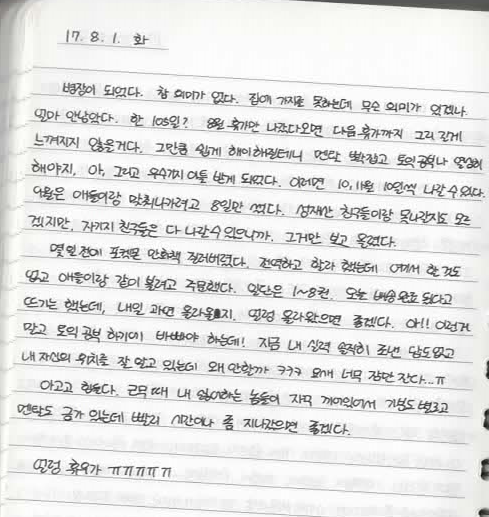 17. 8. 1. 화
병장이 되었다. 참 의미가 없다. 집에 가지도 못하는데 무슨 의미가 있겠나.
얼마 안남았다. 한 105일? 8월 휴가만 나갔다오면 다음 휴가까지 그리 길게
느껴지지 않을거다. 그만큼 쉽게 해이해질테니 멘탈 빡잡고 토익공부나 열심히
해야지. 아, 그리고 우수가지 이틀 받게 되었다. 이러면 10, 11월 10일씩 나갈 수 있다.
9월은 애들이랑 맞춰나가려고 8일만 썼다. 친구들이랑 못나갈지도 모르
겠지만, 자기지 친구들은 다 나갈 수 있으니까. 그거만 보고 올렸다.
몇 일 전에 포켓몬 만화책 질러버렸다. 전역하고 할라 했는데 여기서 한 것도
있고 애들이랑 같이 볼려고 주문했다. 일단은 1~8권. 오늘 배송완료 된다고
뜨기는 했는데, 내일 과연 올라올지. 얼렁 올라왔으면 좋겠다. 아!! 이런거
말고 토익 공부 하기에 바빠야 하는데! 지금 내 실력 솔직히 조낸 답도없고
내 자신의 위치를 잘 알고 있는데 왜 안할까 ㅋㅋㅋ 요새 너무 잠만 잔다...ㅠ
아고고 힘들다. 근무 때 내 싫어하는 놈들이 자꾸 껴있어서 기분도 별로고
멘탈도 금가 있는데 빨리 시간이나 좀 지나갔으면 좋겠다.
얼렁 휴가 ㅠㅠㅠㅠㅠ